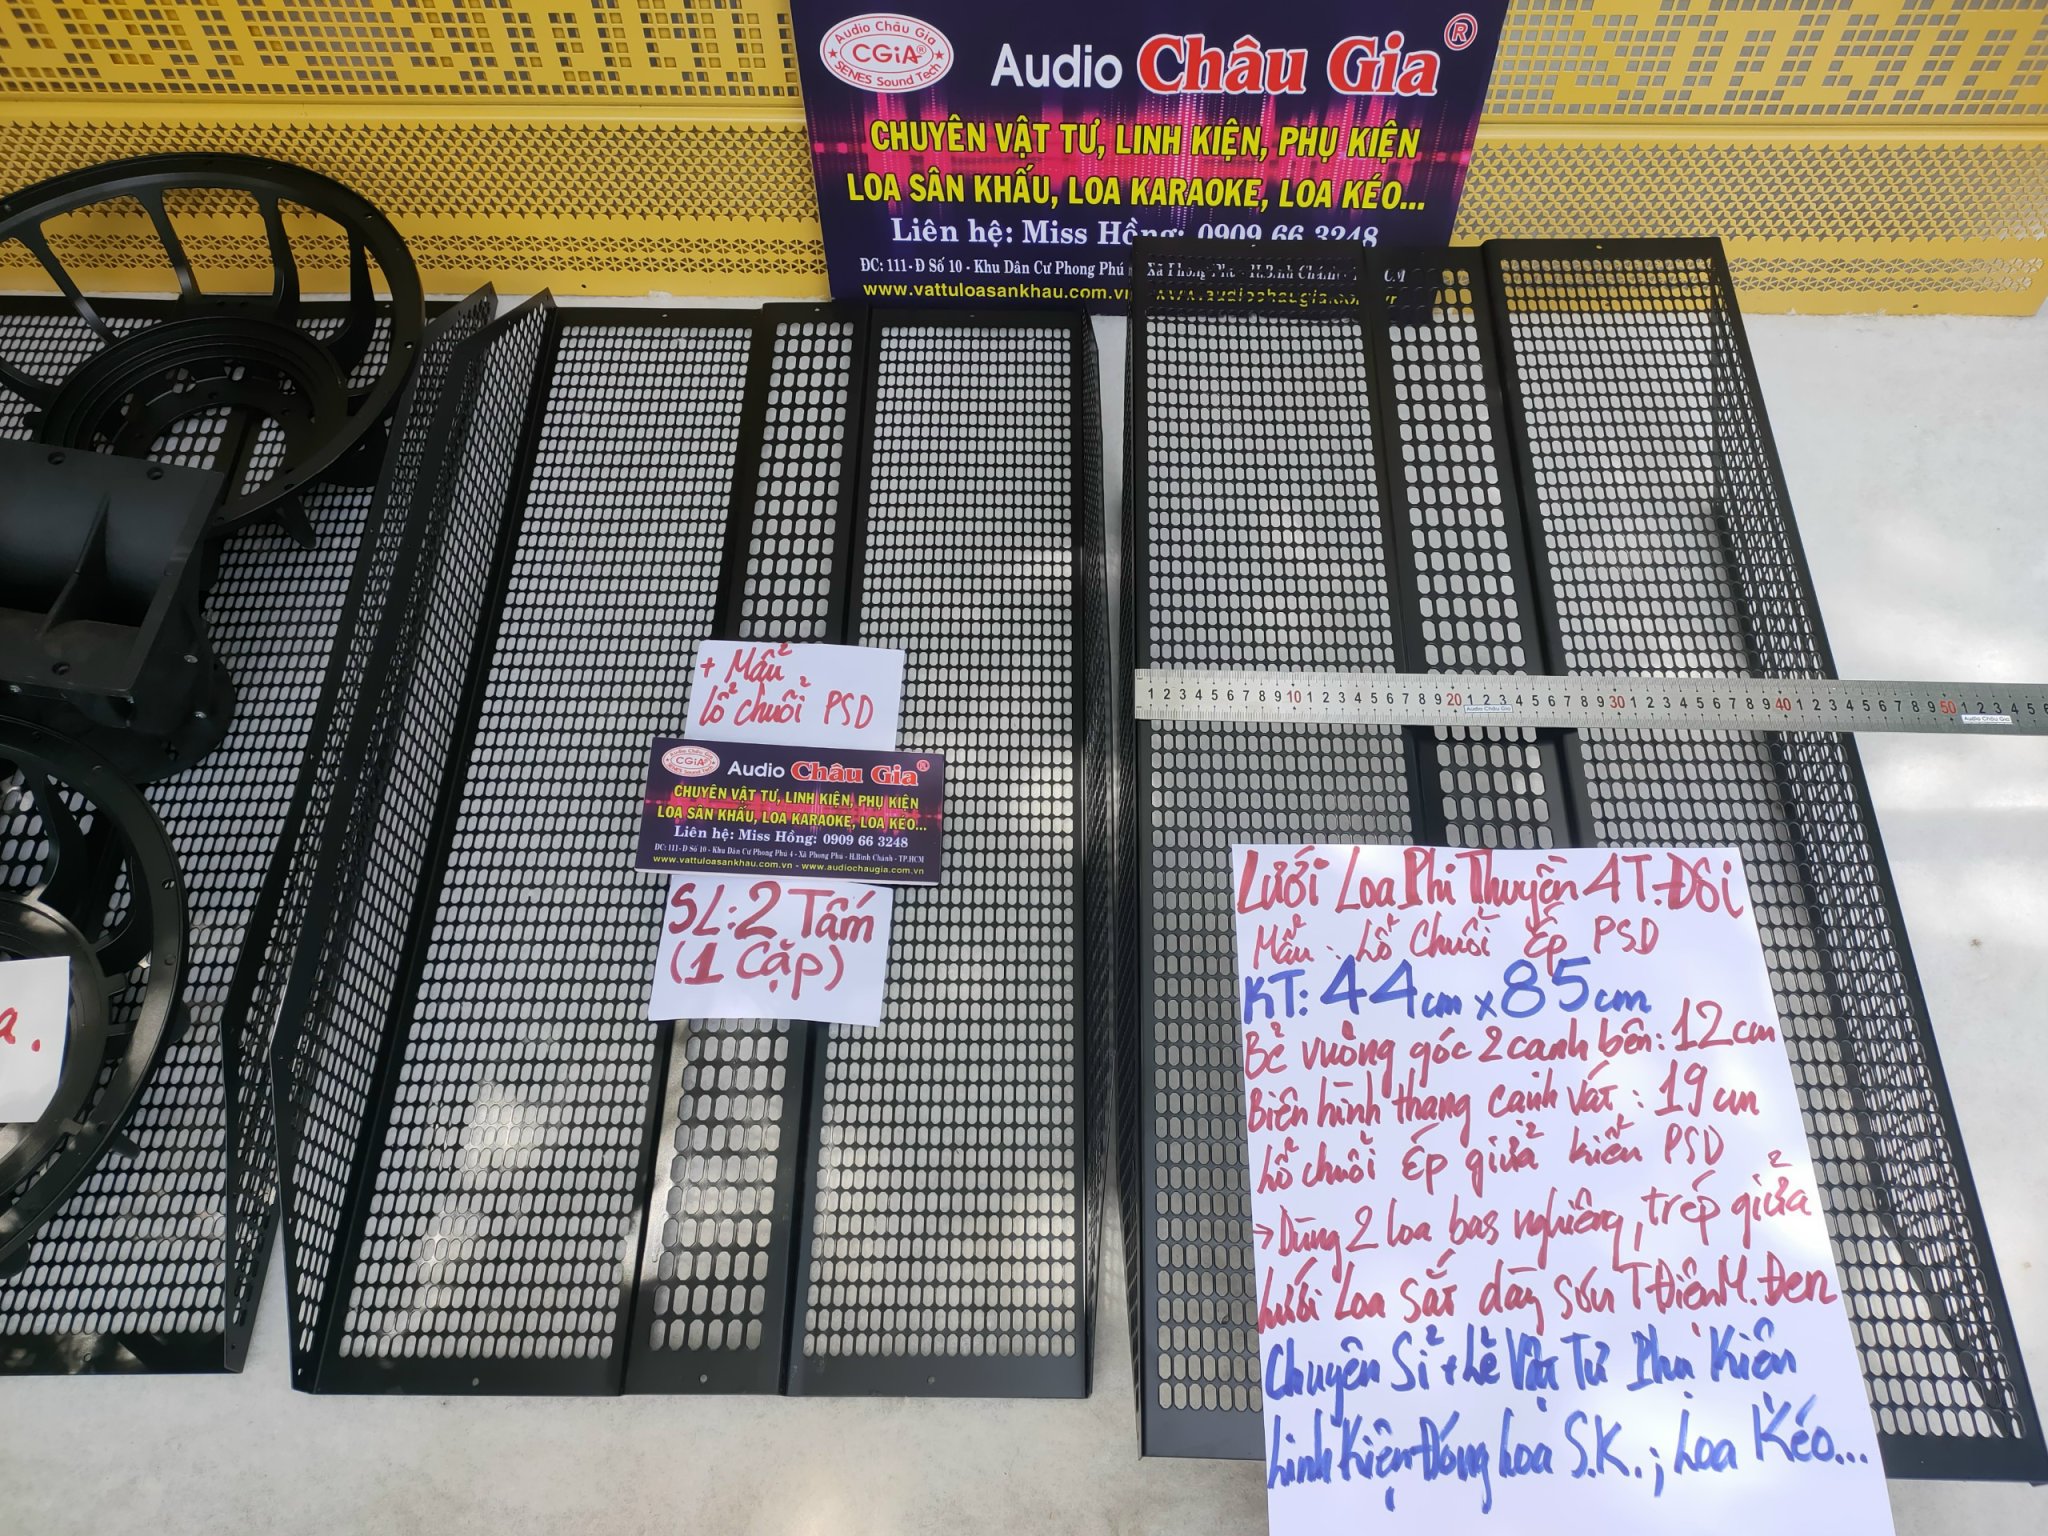 Audio Châu Gia
CGiA®
SENES Sound Tech
Audio Châu Gia ®
CHUYÊN VẬT TƯ, LINH KIỆN, PHỤ KIỆN
LOA SÂN KHẤU, LOA KARAOKE, LOA KÉO...
Liên hệ: Miss Hồng: 0909 66 3248
ĐC: 111-Đ Số 10 - Khu Dân Cư Phong Phú Xã Phong Phú - H.Bình Chánh - TP.HCM
www.vattuloasankhau.com.vn - www.audiochaugia.com.vn
+ Mẫu
Lỗ chuỗi PSD
Audio Châu Gia
CGiA®
SENES Sound Tech
Audio Châu Gia ®
CHUYÊN VẬT TƯ, LINH KIỆN, PHỤ KIỆN
LOA SÂN KHẤU, LOA KARAOKE, LOA KÉO...
Liên hệ: Miss Hồng: 0909 66 3248
ĐC: 111-Đ Số 10 - Khu Dân Cư Phong Phú 4 - Xã Phong Phú - H.Bình Chánh - TP.HCM
www.vattuloasankhau.com.vn - www.audiochaugia.com.vn
SL: 2 Tấm
(1 Cặp)
1 2 3 4 5 6 7 8 9 10 1 2 3 4 5 6 7 8 9 20 1 2 3 4 5 6 7 8 9 30 1 2 3 4 5 6 7 8 9 40 1 2 3 4 5 6 7 8 9 50 1 2 3 4 5 6
Audio Châu Gia
Audio Châu Gia
Lưới Loa Phi Thuyền 4T.Đôi
Mẫu: Lỗ Chuỗi Ép PSD
KT: 44cm x 85cm
Bẻ vuông góc 2 cạnh bên: 12cm
Biên hình thang cạnh vát: 19cm
Lỗ chuỗi Ép giữa kiểu PSD
→ Dùng 2 loa bas nghiêng, trép giữa
Lưới Loa Sắt dày Sơn T Điện M. Đen
Chuyên Sỉ + Lẻ Vật Tư Phụ Kiện
Linh Kiện Đóng Loa S.K.; Loa Kéo...
a.